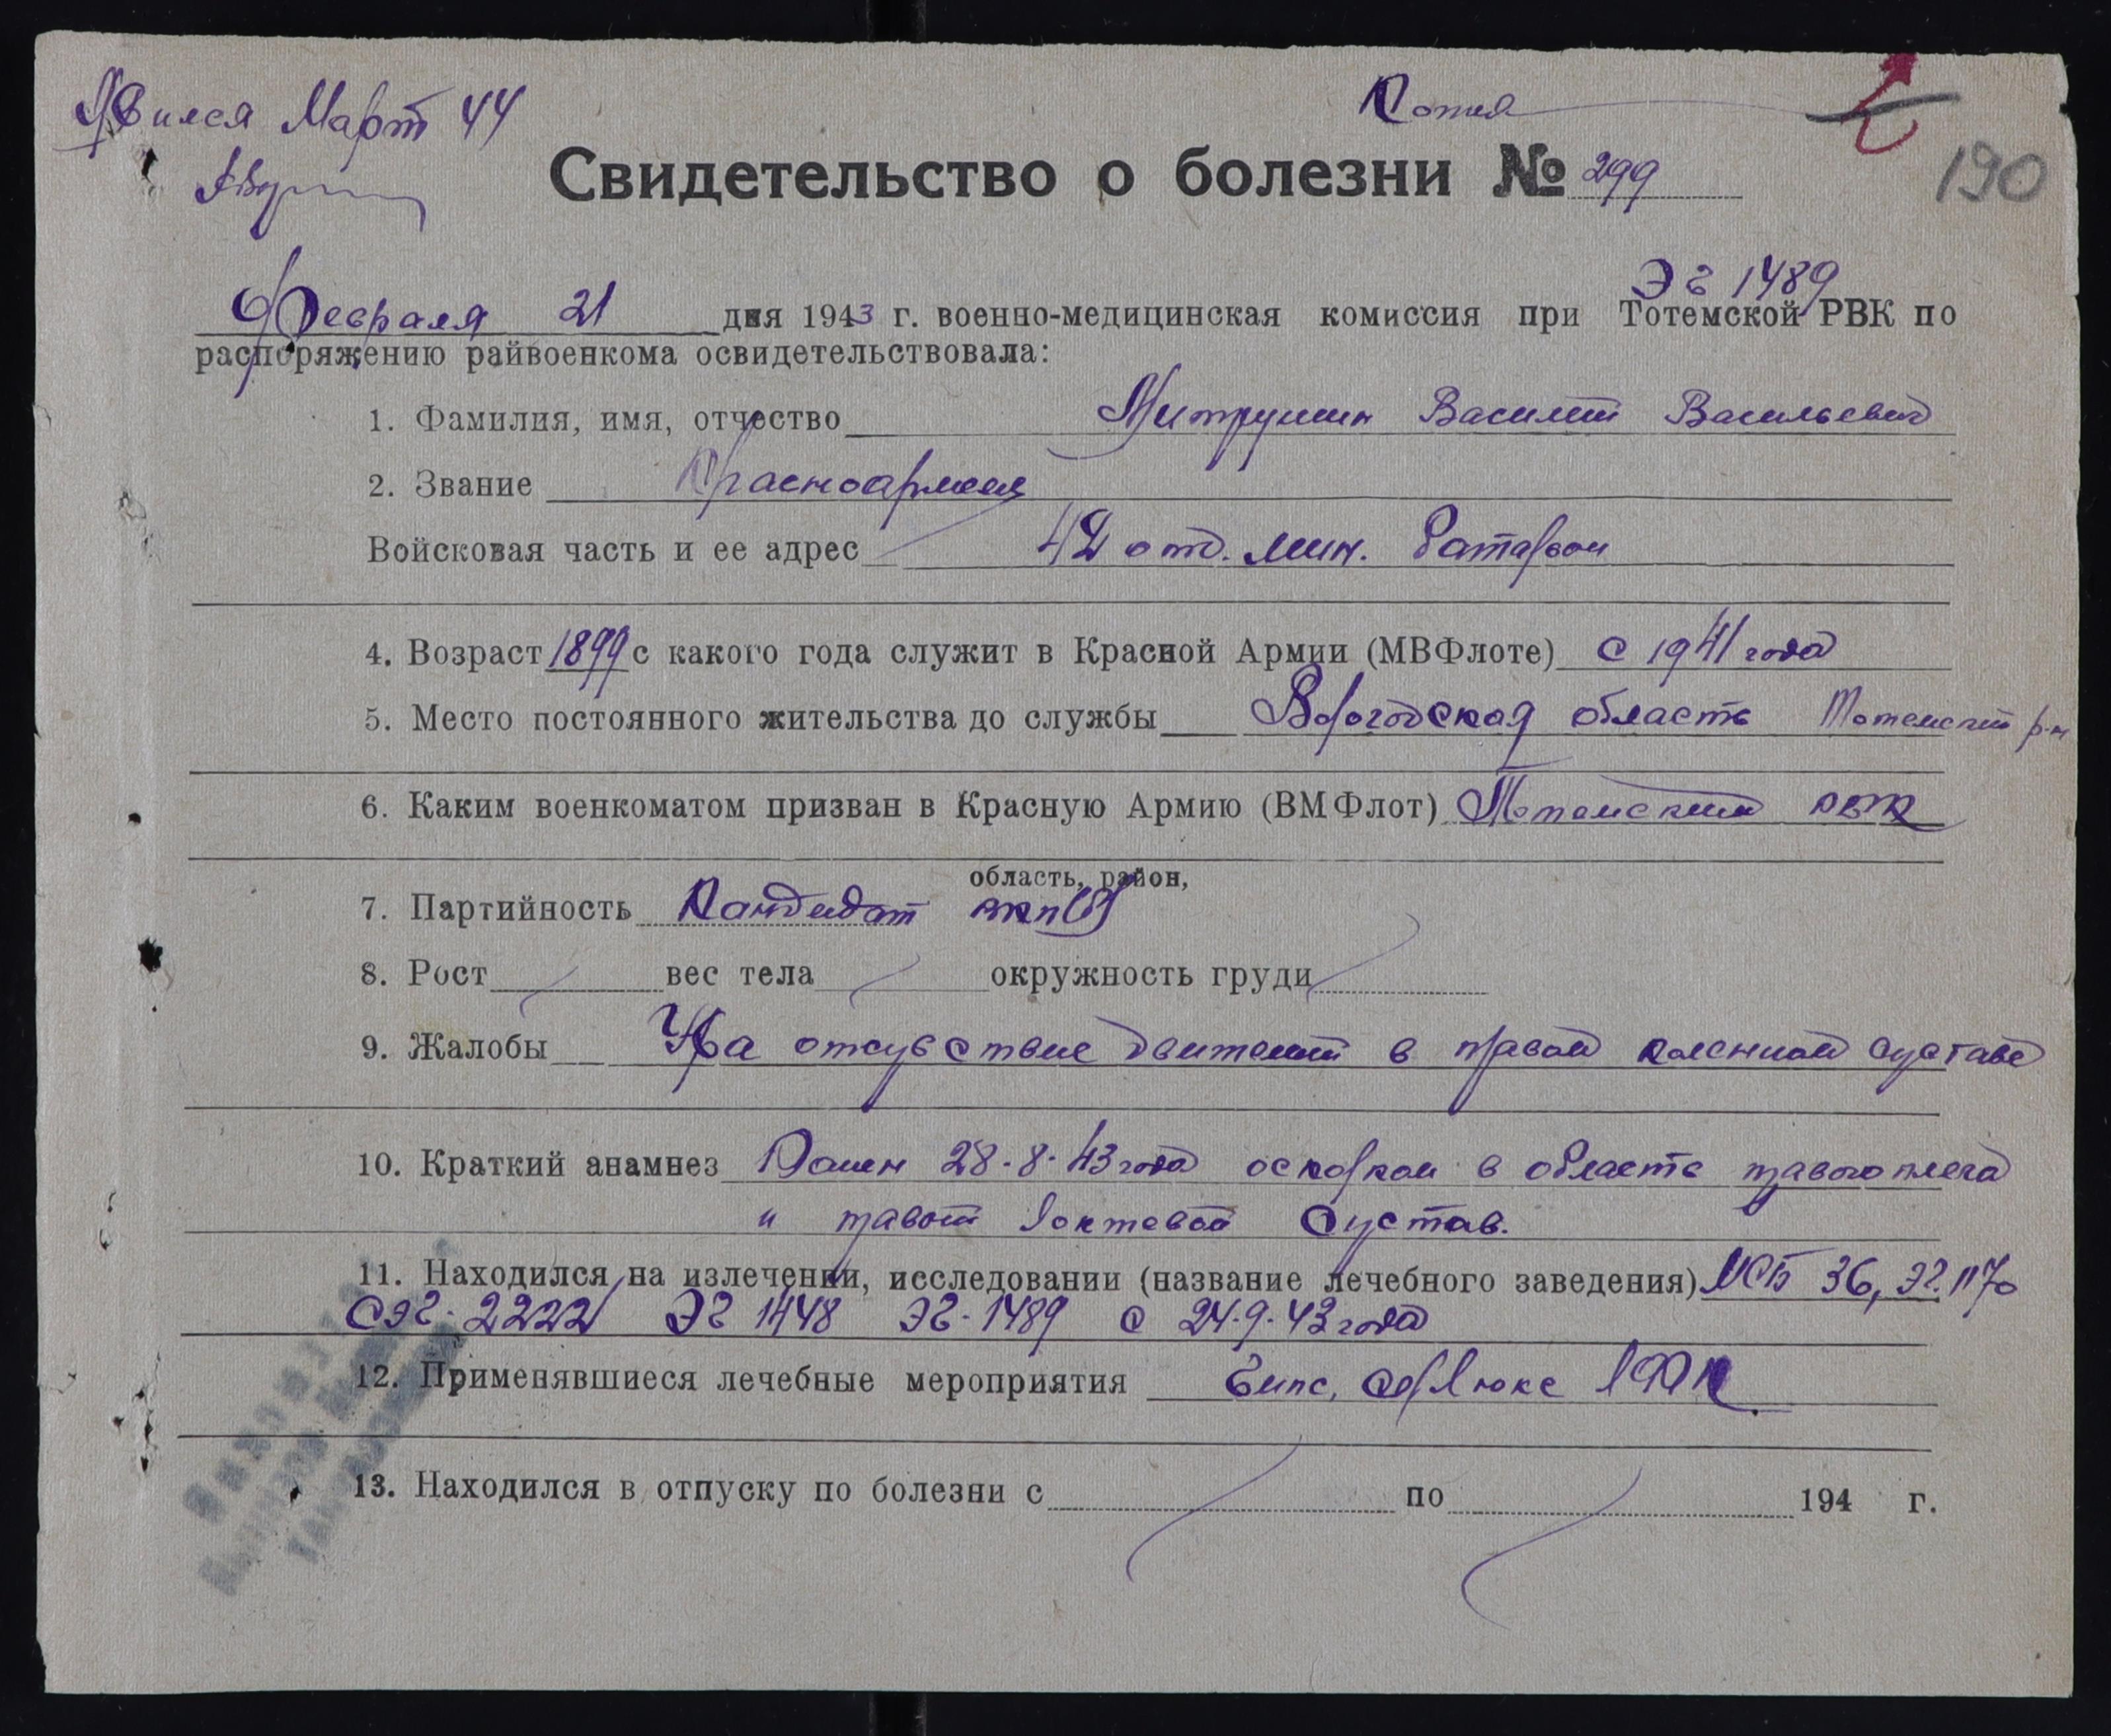 Явился Март 44
Копия
190
Свидетельство о болезни № 299
ЭГ 1489
Февраля 21 дня 1943 г. военно-медицинская комиссия при Тотемской РВК по
распоряжению райвоенкома освидетельствовала:
1. Фамилия, имя, отчество Митрушин Василий Васильевич
2. Звание Красноармеец
Войсковая часть и ее адрес 42 отд. мин. батарои
4. Возраст 1899 с какого года служит в Красной Армии (МВФлоте) с 1941 года
5. Место постоянного жительства до службы Вологодская область Тотемский р-н
6. Каким военкоматом призван в Красную Армию (ВМФлот) Тотемским РВК
область, район,
7. Партийность Кандидат ВКП(б)
8. Рост вес тела окружность груди
9. Жалобы На отсувствие движений в правом коленном суставе
10. Краткий анамнез Ранен 28.8.43 года осколком в область правого плеча
и правый локтевой сустав.
11. Находился на излечении, исследовании (название лечебного заведения) МСБ 36, ЭГ. 1170
СЭГ-2222 ЭГ 1448 ЭГ-1489 с 24.9.43 года
12. Применявшиеся лечебные мероприятия Гипс, соллюкс ЛФК
13. Находился в отпуску по болезни с по 194 г.